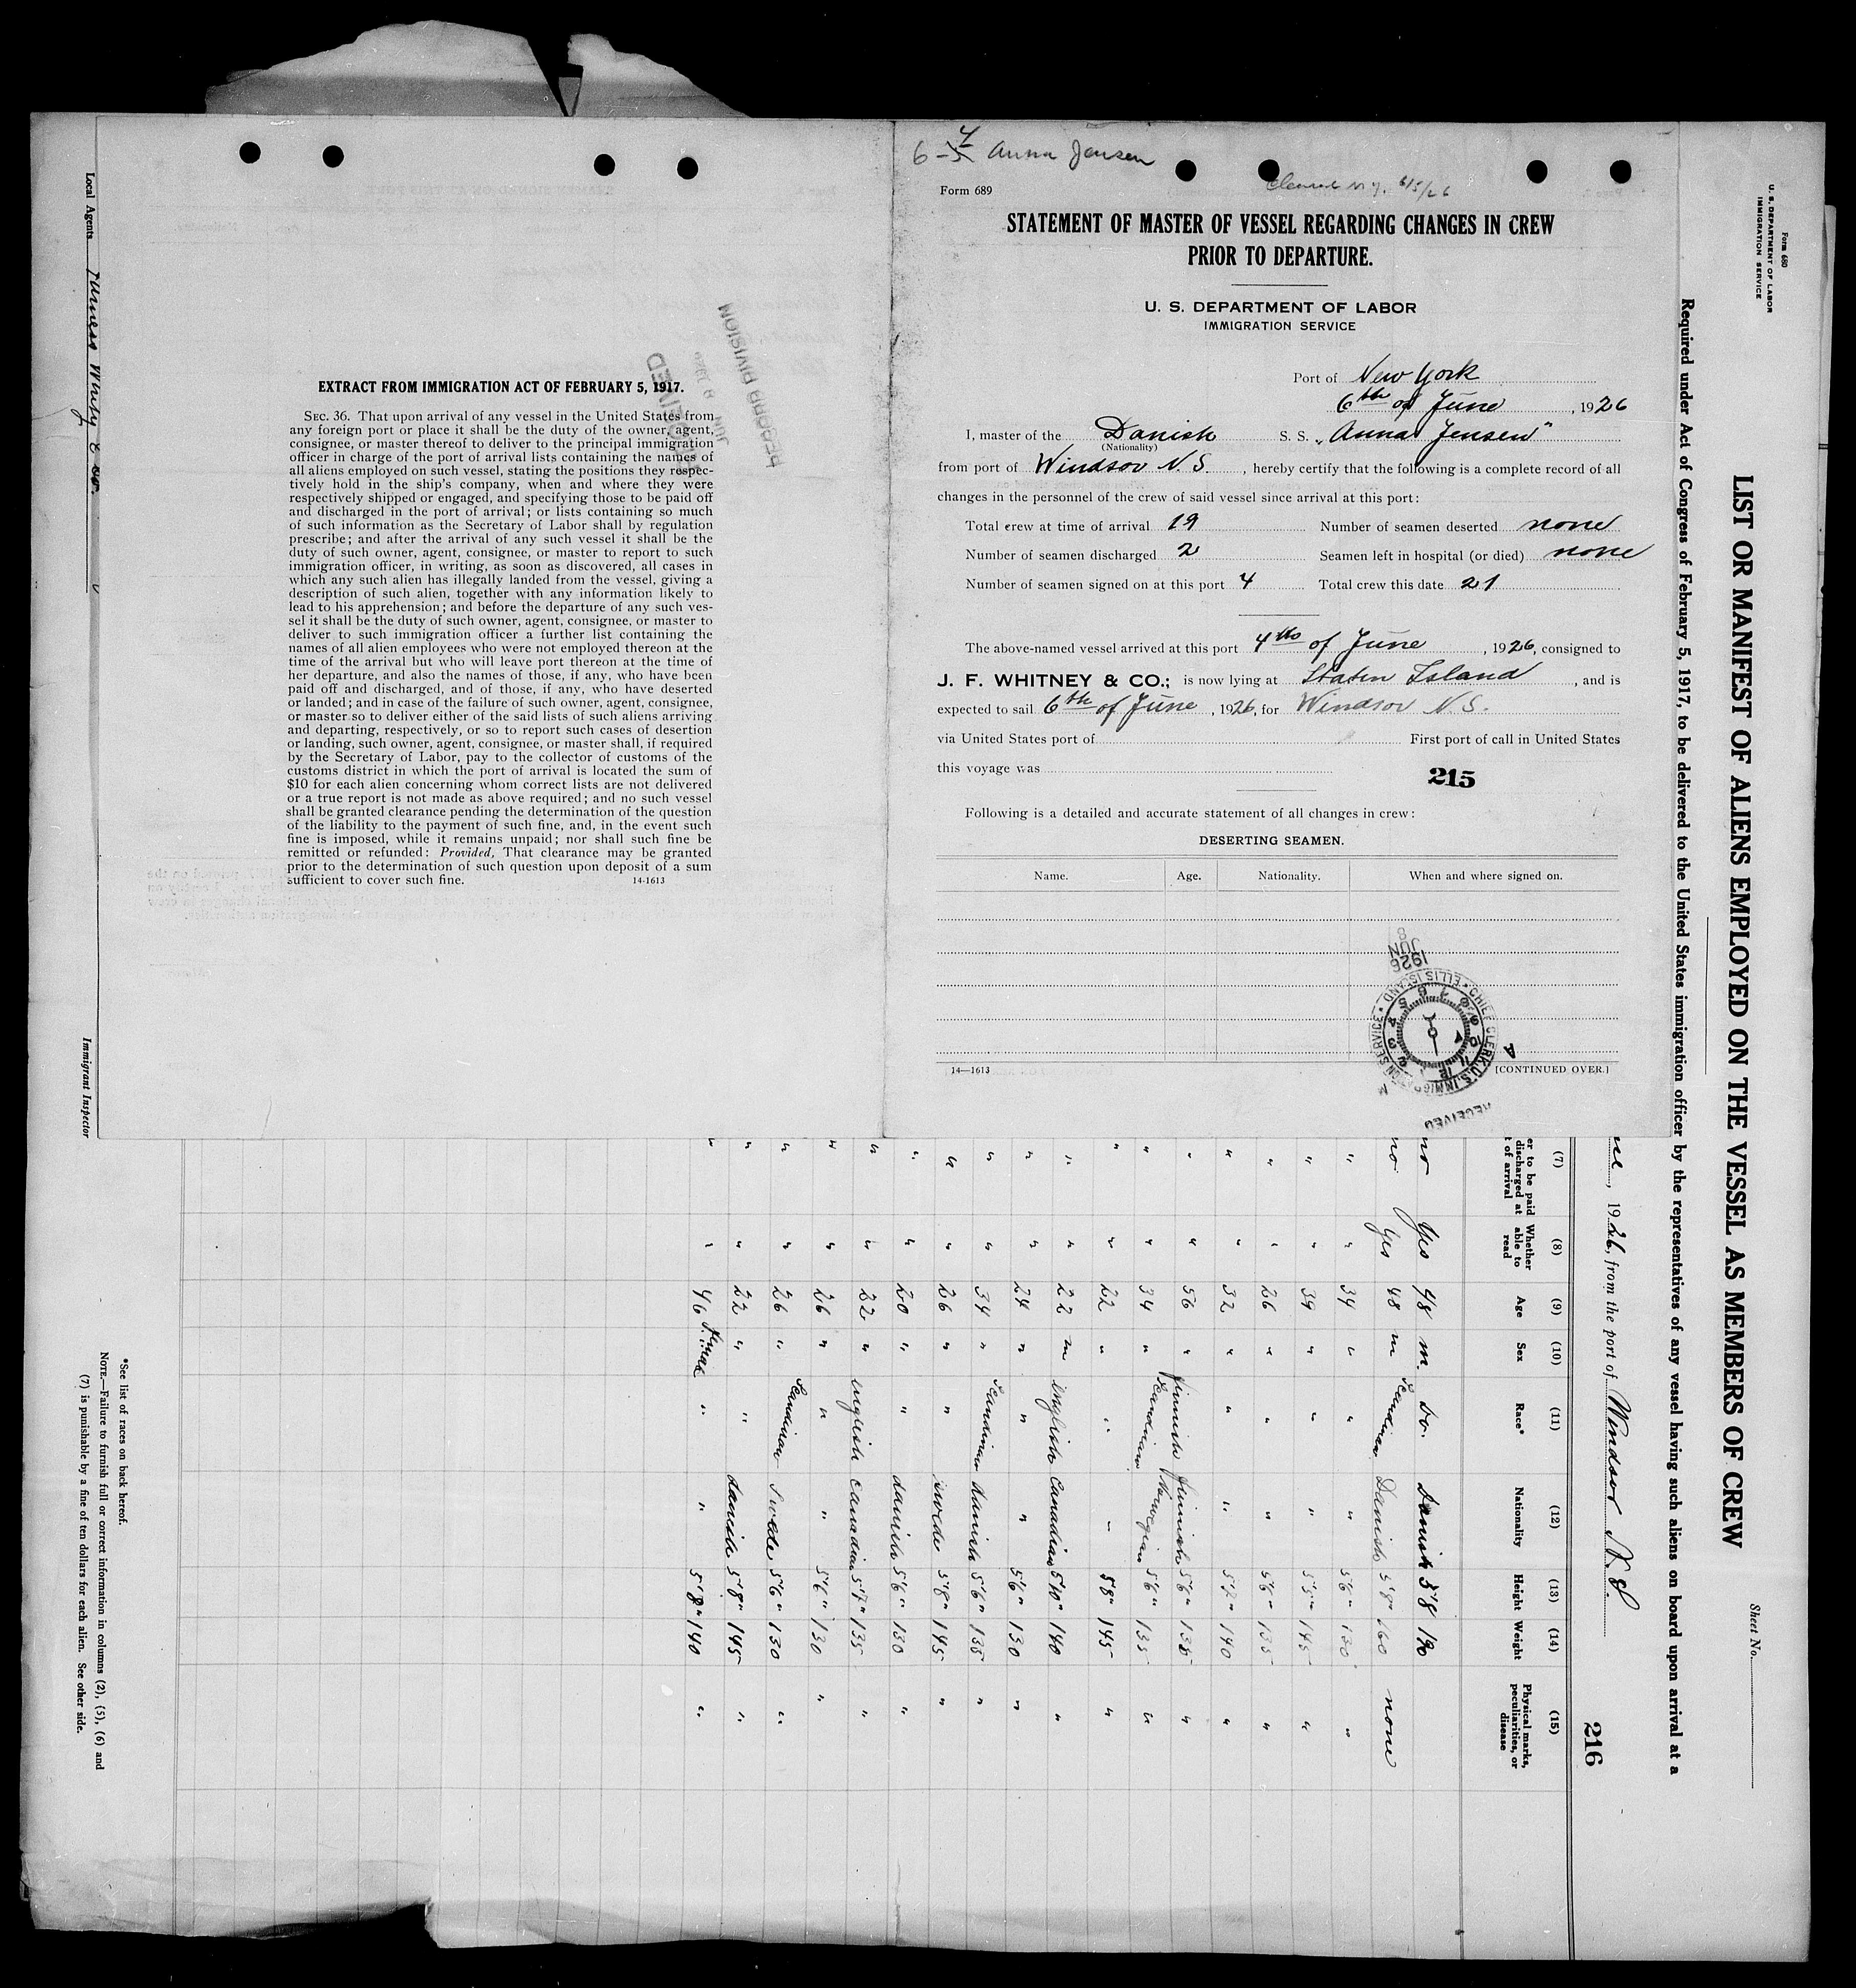 6-4 Anna Jensen
Cleared N.Y. 6/5/26
Form 689
STATEMENT OF MASTER OF VESSEL REGARDING CHANGES IN CREW
PRIOR TO DEPARTURE.
U. S. DEPARTMENT OF LABOR
IMMIGRATION SERVICE
Port of New York
6th of June, 1926
I, master of the Danish S. S. "Anna Jensen"
(Nationality)
from port of Windsor N. S., hereby certify that the following is a complete record of all
changes in the personnel of the crew of said vessel since arrival at this port:
Total crew at time of arrival 19 Number of seamen deserted none
Number of seamen discharged 2 Seamen left in hospital (or died) none
Number of seamen signed on at this port 4 Total crew this date 21
The above-named vessel arrived at this port 4th of June, 1926, consigned to
J. F. WHITNEY & CO.; is now lying at Staten Island, and is
expected to sail 6th of June, 1926, for Windsor N. S.
via United States port of First port of call in United States
this voyage was
215
Following is a detailed and accurate statement of all changes in crew:
DESERTING SEAMEN.
Name. Age. Nationality. When and where signed on.
1926
JUN
8
CHIEF CLERK, U.S. IMMIGRATION SERVICE • ELLIS ISLAND •
RECEIVED
14—1613 [CONTINUED OVER.]
EXTRACT FROM IMMIGRATION ACT OF FEBRUARY 5, 1917.
SEC. 36. That upon arrival of any vessel in the United States from
any foreign port or place it shall be the duty of the owner, agent,
consignee, or master thereof to deliver to the principal immigration
officer in charge of the port of arrival lists containing the names of
all aliens employed on such vessel, stating the positions they respec-
tively hold in the ship's company, when and where they were
respectively shipped or engaged, and specifying those to be paid off
and discharged in the port of arrival; or lists containing so much
of such information as the Secretary of Labor shall by regulation
prescribe; and after the arrival of any such vessel it shall be the
duty of such owner, agent, consignee, or master to report to such
immigration officer, in writing, as soon as discovered, all cases in
which any such alien has illegally landed from the vessel, giving a
description of such alien, together with any information likely to
lead to his apprehension; and before the departure of any such ves-
sel it shall be the duty of such owner, agent, consignee, or master to
deliver to such immigration officer a further list containing the
names of all alien employees who were not employed thereon at the
time of the arrival but who will leave port thereon at the time of
her departure, and also the names of those, if any, who have been
paid off and discharged, and of those, if any, who have deserted
or landed; and in case of the failure of such owner, agent, consignee,
or master so to deliver either of the said lists of such aliens arriving
and departing, respectively, or so to report such cases of desertion
or landing, such owner, agent, consignee, or master shall, if required
by the Secretary of Labor, pay to the collector of customs of the
customs district in which the port of arrival is located the sum of
$10 for each alien concerning whom correct lists are not delivered
or a true report is not made as above required; and no such vessel
shall be granted clearance pending the determination of the question
of the liability to the payment of such fine, and, in the event such
fine is imposed, while it remains unpaid; nor shall such fine be
remitted or refunded: Provided, That clearance may be granted
prior to the determination of such question upon deposit of a sum
sufficient to cover such fine. 14-1613
RECEIVED
JUN 8 1926
RECORD DIVISION
Form 680
U. S. DEPARTMENT OF LABOR
IMMIGRATION SERVICE
Sheet No.
LIST OR MANIFEST OF ALIENS EMPLOYED ON THE VESSEL AS MEMBERS OF CREW
Required under Act of Congress of February 5, 1917, to be delivered to the United States immigration officer by the representatives of any vessel having such aliens on board upon arrival at a
, 1926, from the port of Windsor N.S.
216
(7) (8) (9) (10) (11) (12) (13) (14) (15)
er to be paid discharged at t of arrival Whether able to read Age Sex Race* Nationality Height Weight Physical marks, peculiarities, or disease
no Yes 48 m. do. Danish 5'8 190
no Yes 48 m Scandinav Danish 5'8" 160 none
" " 34 " " " 5'6" 130 "
" " 39 " " " 5'5" 145 "
" " 26 " " " 5'6" 135 "
" " 32 " " " 5'7" 140 "
" " 56 " finnish finnish 5'6" 135 "
" " 34 " Scandinav Norwegian 5'6" 135 "
" " 22 " " " 5'8" 145 "
" " 22 m english Canadian 5'10" 140 "
" " 24 " " " 5'6" 130 "
" " 34 " Scandinav danish 5'6" 135 "
" " 26 " " swede 5'8" 145 "
" " 20 " " danish 5'6" 130 "
" " 22 " english Canadian 5'7" 135 "
" " 26 " " " 5'6" 130 "
" " 26 " Scandinav Swede 5'6" 130 "
" " 22 " " danish 5'8" 145 "
" " 46 " " 5'8" 140 "
*See list of races on back hereof.
NOTE.—Failure to furnish full or correct information in columns (2), (5), (6) and
(7) is punishable by a fine of ten dollars for each alien. See other side.
Local Agents
Immigrant Inspector